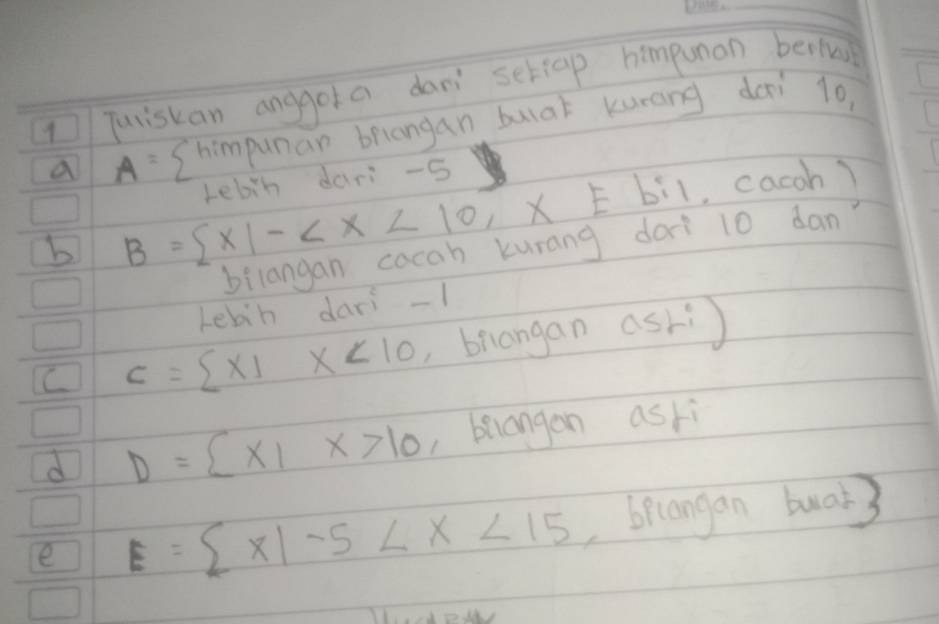 1 Tuliskan anggota dari setiap himpunan berikut
a A = { himpunan bilangan bulat kurang dari 10,
Lebih dari -5
b B = { x | - < x < 10, x E bil. cacah )
bilangan cacah kurang dari 10 dan
Lebih dari -1
c C = { x | x < 10, bilangan asli )
d D = { x | x > 10, bilangan asli
e E = { x | -5 < x < 15, bilangan bulat }